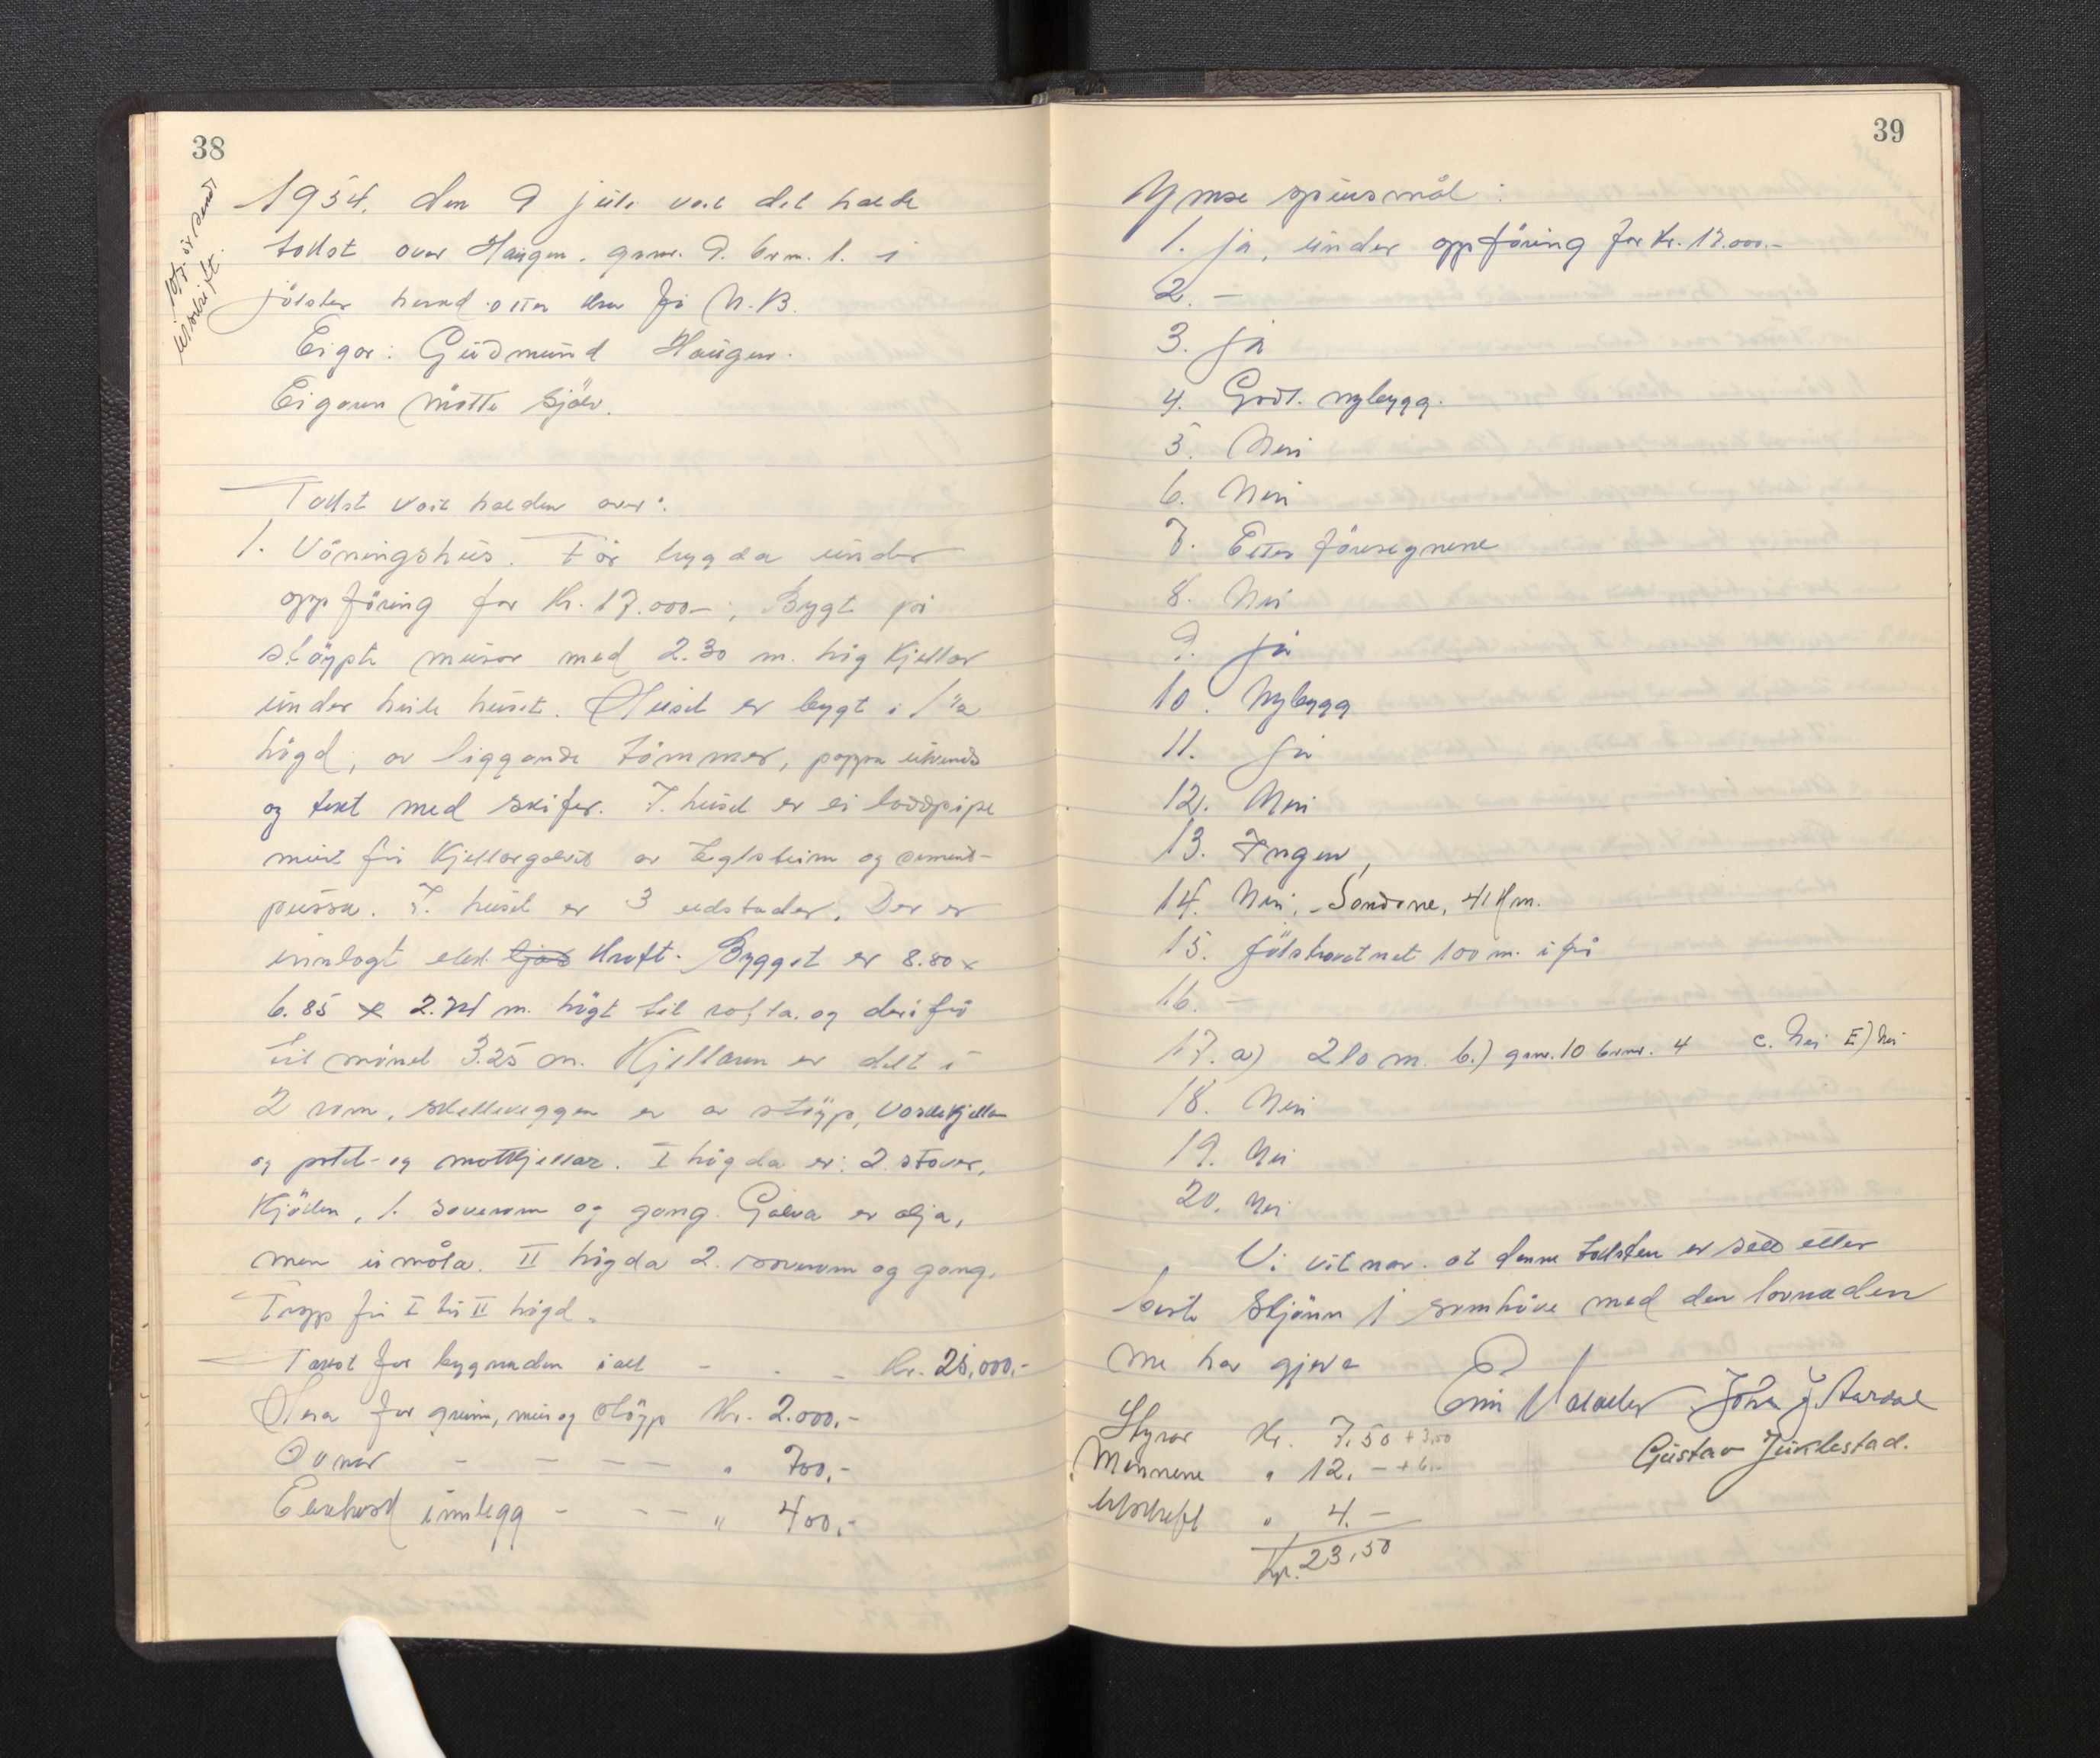 38
10/7 är sendt
utskrift.
1954. den 9 juli vart det halde
takst over Haugen. gnr. 9. brn. 1. i
jölster herad etter krav frå N.B.
Eigar: Gudmund Haugen.
Eigaren møtte sjølv.
Takst vart halden over:
1. Våningshus. Før bygda under
oppföring for kr. 17.000-; Bygt på
stöypte murar med 2.30 m. hög kjellar
under heile huset. Huset er bygt i 1 1/2
högd, av liggande tömmer, pappa utvendes
og tekt med skifer. I. huset er ei loddpipe
murt frå kjellargolvet av teglstein og sement-
pussa. I. huset er 3 eldstader. Der er
innlagt elek. ljos kraft. Bygget er 8.80 x
6.85 x 2.71 m. högt til rafta. og derifrå
til mönet 3.25 m. Kjellaren er delt i
2 rom, skelleveggen er av stöyp, vaskekjellar
og potet- og matkjellar. I högda er: 2 stover,
Kjöken, 1. soverom og gang. Golva er olja,
men umåla. II högda 2. soverom og gang.
Trapp frå I til II högd.
Takst for bygnaden i alt - - - kr. 25.000.-
Herav for grunn, mur og stöyp Kr. 2.000,-
Omnar - - - - " 700,-
Elektrisk innlegg - - - " 400,-
39
Ymse spursmål:
1. ja, under oppföring for kr. 17.000.-
2. -
3. ja
4. Godt. nybygg.
5. Nei
6. Nei
7. Etter föresegnene
8. Nei
9. ja
10. Nybygg
11. ja
12. Nei
13. Ingen,
14. Nei. - Sandane, 41 Km.
15. Jölstravatnet 100 m. ifrå
16. -
17. a) 210 m. b.) gnr. 10 brnr. 4 c. Nei E) Nei
18. Nei
19. Nei
20. Nei
Vi vitnar. at denne taksten er sett etter
beste skjönn i samhöve med den lovnaden
me har gjeve
Johan J. Aardal
Gustav Juklestad.
Styrar Kr. 7.50 + 3,50
Mennene " 12.- + 6.-
Utskrift " 4.-
Kr. 23,50